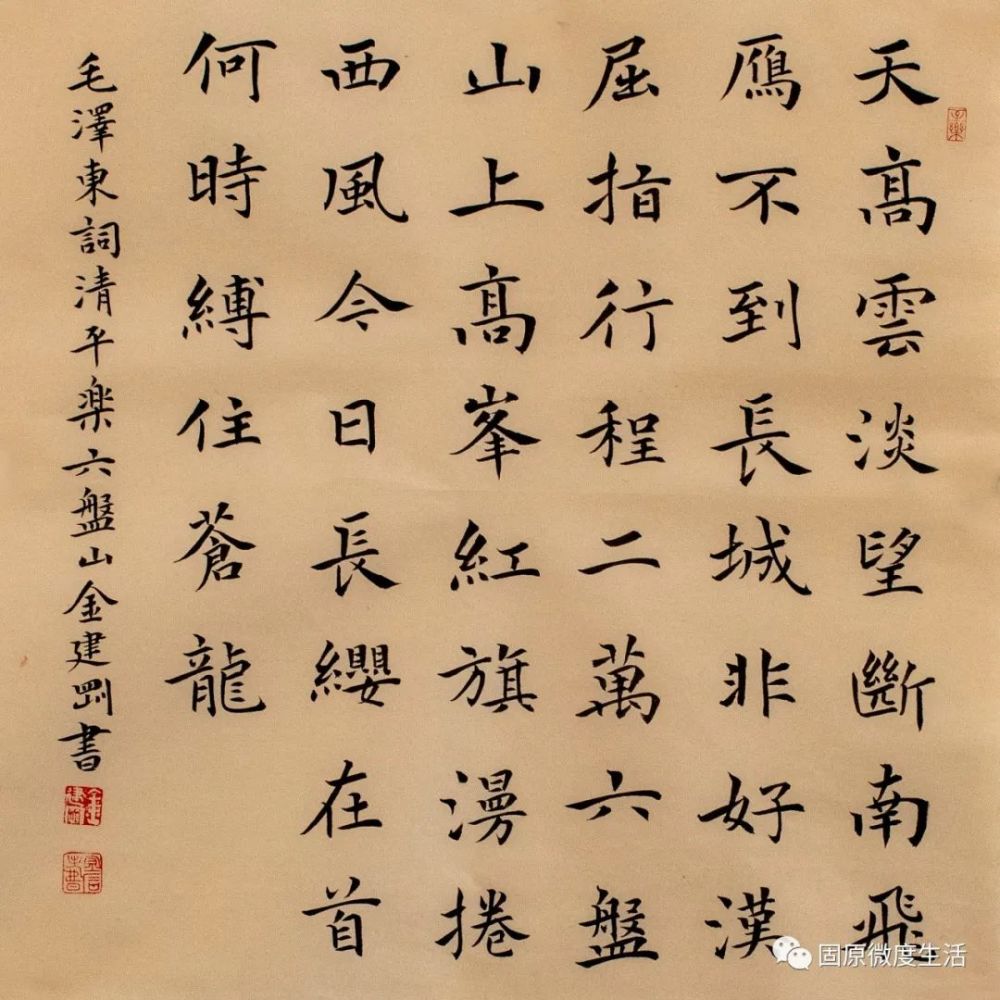 天高雲淡望斷南飛
鴈不到長城非好漢
屈指行程二萬六盤
山上高峯紅旗漫捲
西風今日長纓在首
何時縛住蒼龍
毛澤東詞清平楽六盤山金建剛書
固原微度生活